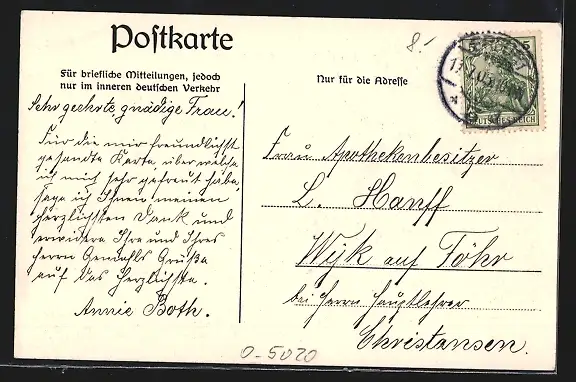 Postkarte
8.-
Für briefliche Mitteilungen, jedoch
nur im inneren deutschen Verkehr
Nur für die Adresse
5
DEUTSCHES REICH
Sehr geehrte gnädige Frau!
Für die mir freundlichst
gesandte Karte über welche
ich mich sehr gefreut habe,
sage ich Ihnen meinen
herzlichsten Dank und
erwidere Ihre und Ihres
Herrn Gemahls Grüße
auf das Herzlichste.
Annie Both.
Frau Apothekenbesitzer
L. Hanff
Wyk auf Föhr
bei Herrn Hauptlehrer
Christansen.
0-5020